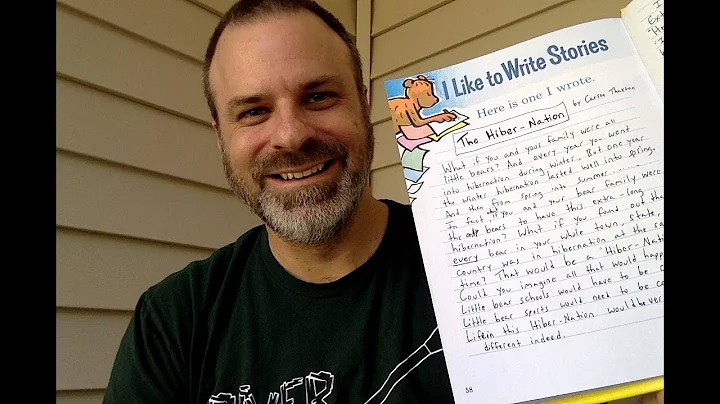 I Like to Write Stories
Here is one I wrote.
The Hiber-Nation
by Carson
What if you and your family were all
little bears? And every year you went
into hibernation during winter. But one year
the winter hibernation lasted well into spring.
And then from spring into summer.....
In fact, what if you and your bear family were
the only bears to have this extra-long
hibernation? What if you found out tha
every bear in your whole town, state,
country was in hibernation at the sa
time? That would be a "Hiber-Nati
Could you imagine all that would happ
Little bear schools would have to be
Little bear sports would need to be ca
Life in this Hiber-Nation would be ver
different indeed.
58
RIVER